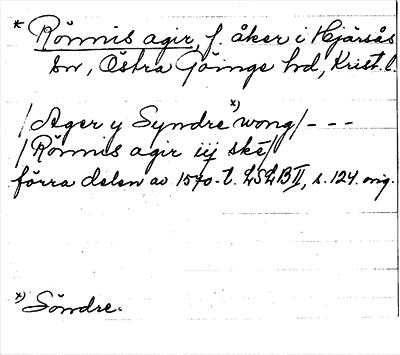 * Rönnis agir, f. åker i Hjärsås
sn, Östra Göinge hd, Krist. l.
/Ager y Syndre *) wong/ - - -
/Rönnis agir iij ske/
förra delen av 1570-t. LSLB II, s. 124. orig.
*) Söndre.